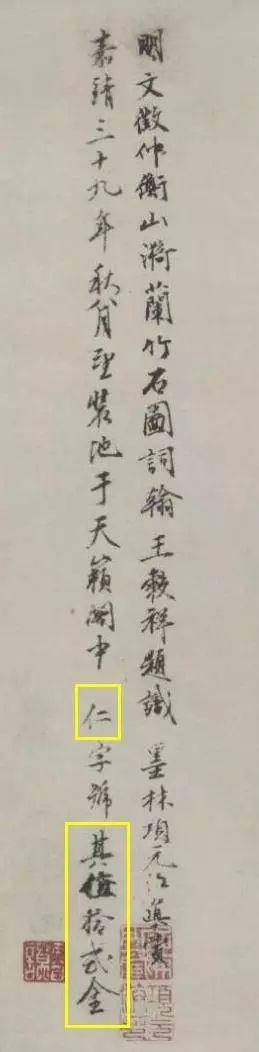 明文徵仲衡山漪蘭竹石圖詞翰王榖祥題識 墨林項元汴真賞
嘉靖三十九年秋八月重裝池于天籟閣中 仁字號 其值拾弍金